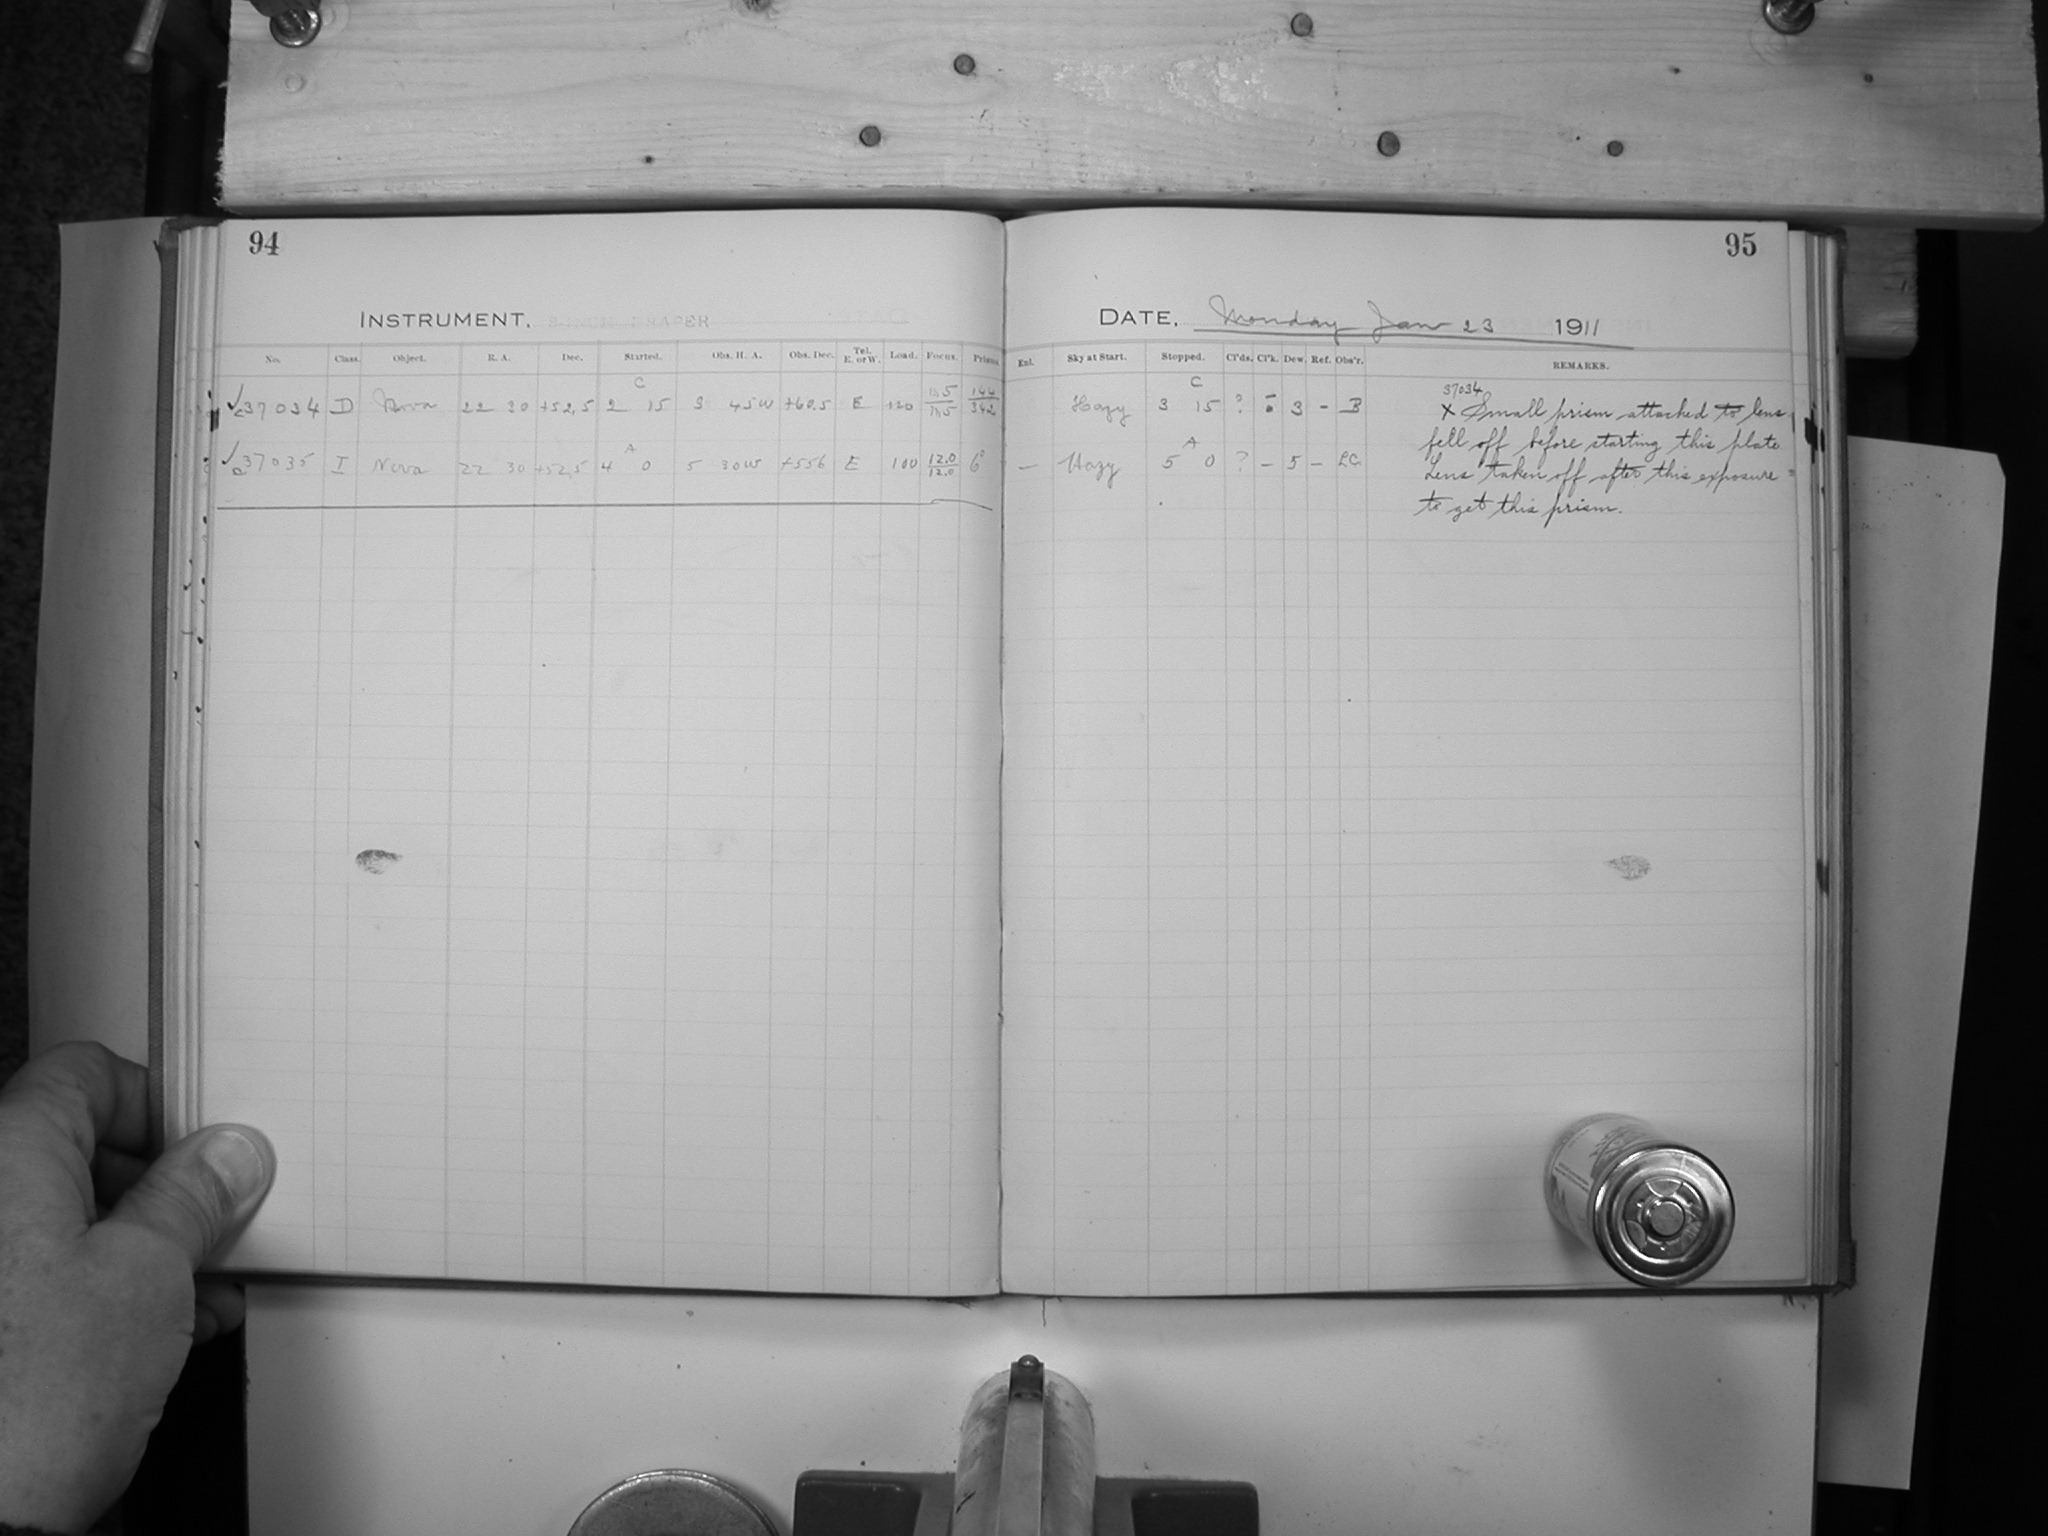 94
INSTRUMENT, 8-INCH DRAPER
No. Class. Object. R. A. Dec. Started. Obs. H. A. Obs. Dec. Tel. E. or W. Load. Focus. Prisms
C
✓ c37034 D Nova 22 30 +52,5 2 15 3 45W +60.5 E 120
A
✓ 37035 I Nova 22 30 +52,5 4 0 5 30W +556 E 100 12.0 12.0 6°
95
DATE, Monday Jan 23 1911
Enl. Sky at Start. Stopped. Cl'ds. Cl'k. Dew. Ref. Obs'r. REMARKS.
C
Hazy 3 15 ? 3 - B
A
- Hazy 5 0 ? - 5 - LC
37034
X Small prism attached to lens
fell off before starting this plate
Lens taken off after this exposure
to get this prism.